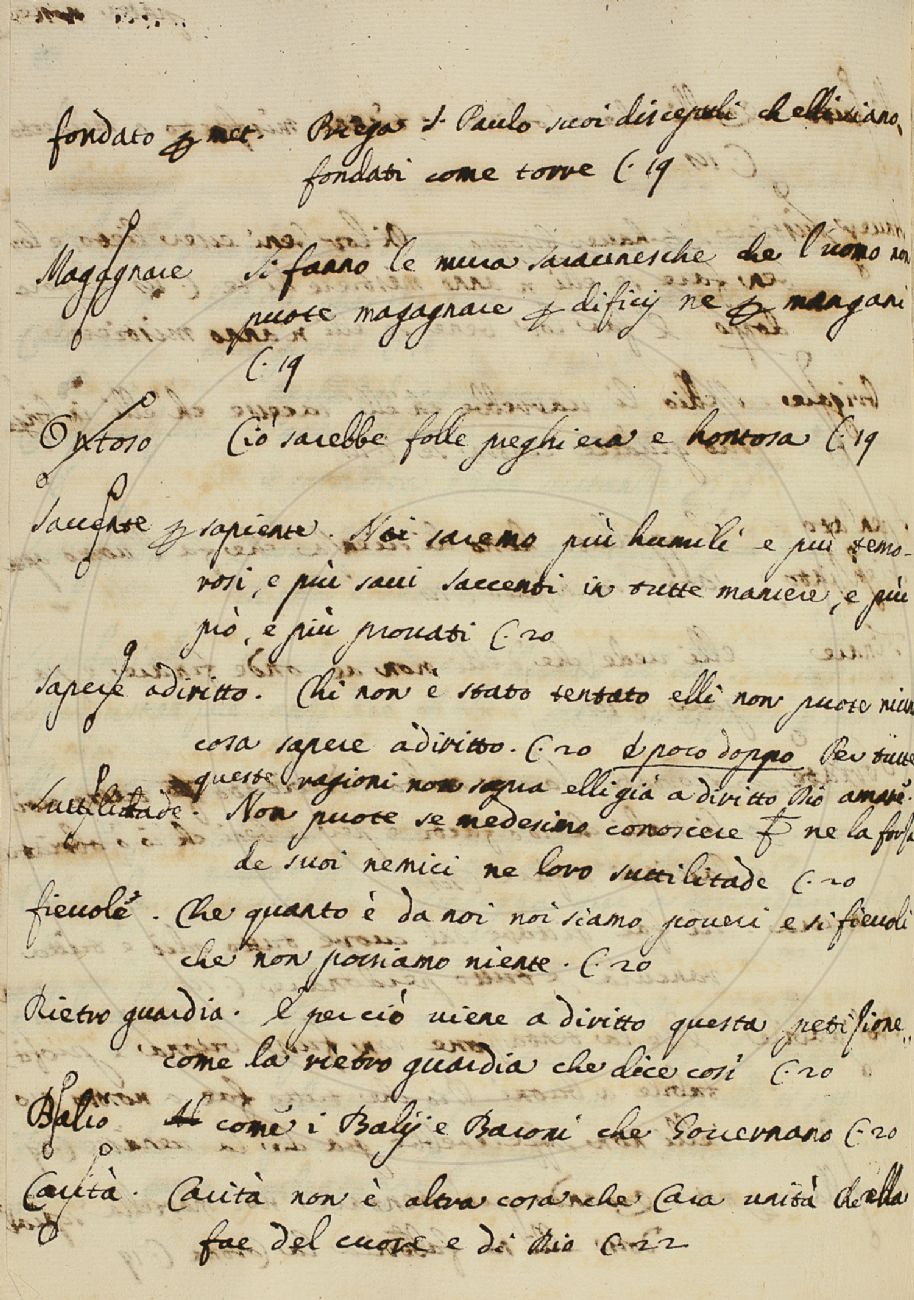 fondato p met. Priega S. Paulo suoi discepuli ch elli siano
fondati come torre C. 19
Magagnare Si fanno le mura saracinesche che l'uomo non
puote magagnare p dificij ne p mangani
C. 19
Ontoso Ciò sarebbe folle preghiera e hontosa C. 19
Saccente p sapiente. Noi saremo più humili e più temo-
rosi, e più savi saccenti in tutte maniere, e più
prò, e più provati C. 20
Sapere a diritto. Chi non è stato tentato elli non puote niuna
cosa sapere à diritto. C. 20 & poco doppo Per tutte
queste ragioni non sapra elli già a diritto Dio amare.
Suttilitade. Non puote se medesimo conoscere ne la forza
de suoi nemici ne loro suttilitade C. 20
fievole. Che quanto è da noi noi siamo poveri e si fievoli
che non possiamo niente. C. 20
Rietro guardia. E perciò viene a diritto questa petizione
come la rietro guardia che dice così C. 20
Balio come i Balij e Baroni che Governano C. 20
Carità. Carità non è altra cosa che Cara unità ch ella
fae del cuore e di Dio C. 22